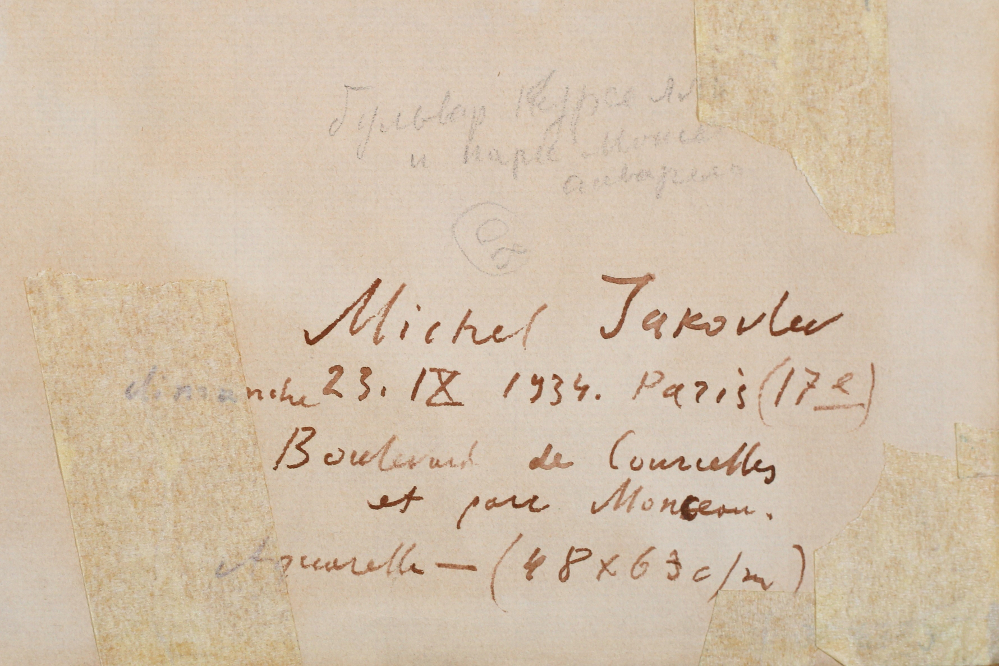 бульвар Курселль
и парк Монсо
акварель
Michel Jakovlev
dimanche 23. IX 1934. Paris (17e)
Boulevard de Courcelles
et parc Monceau.
Aquarelle — (48 x 63 c/m)